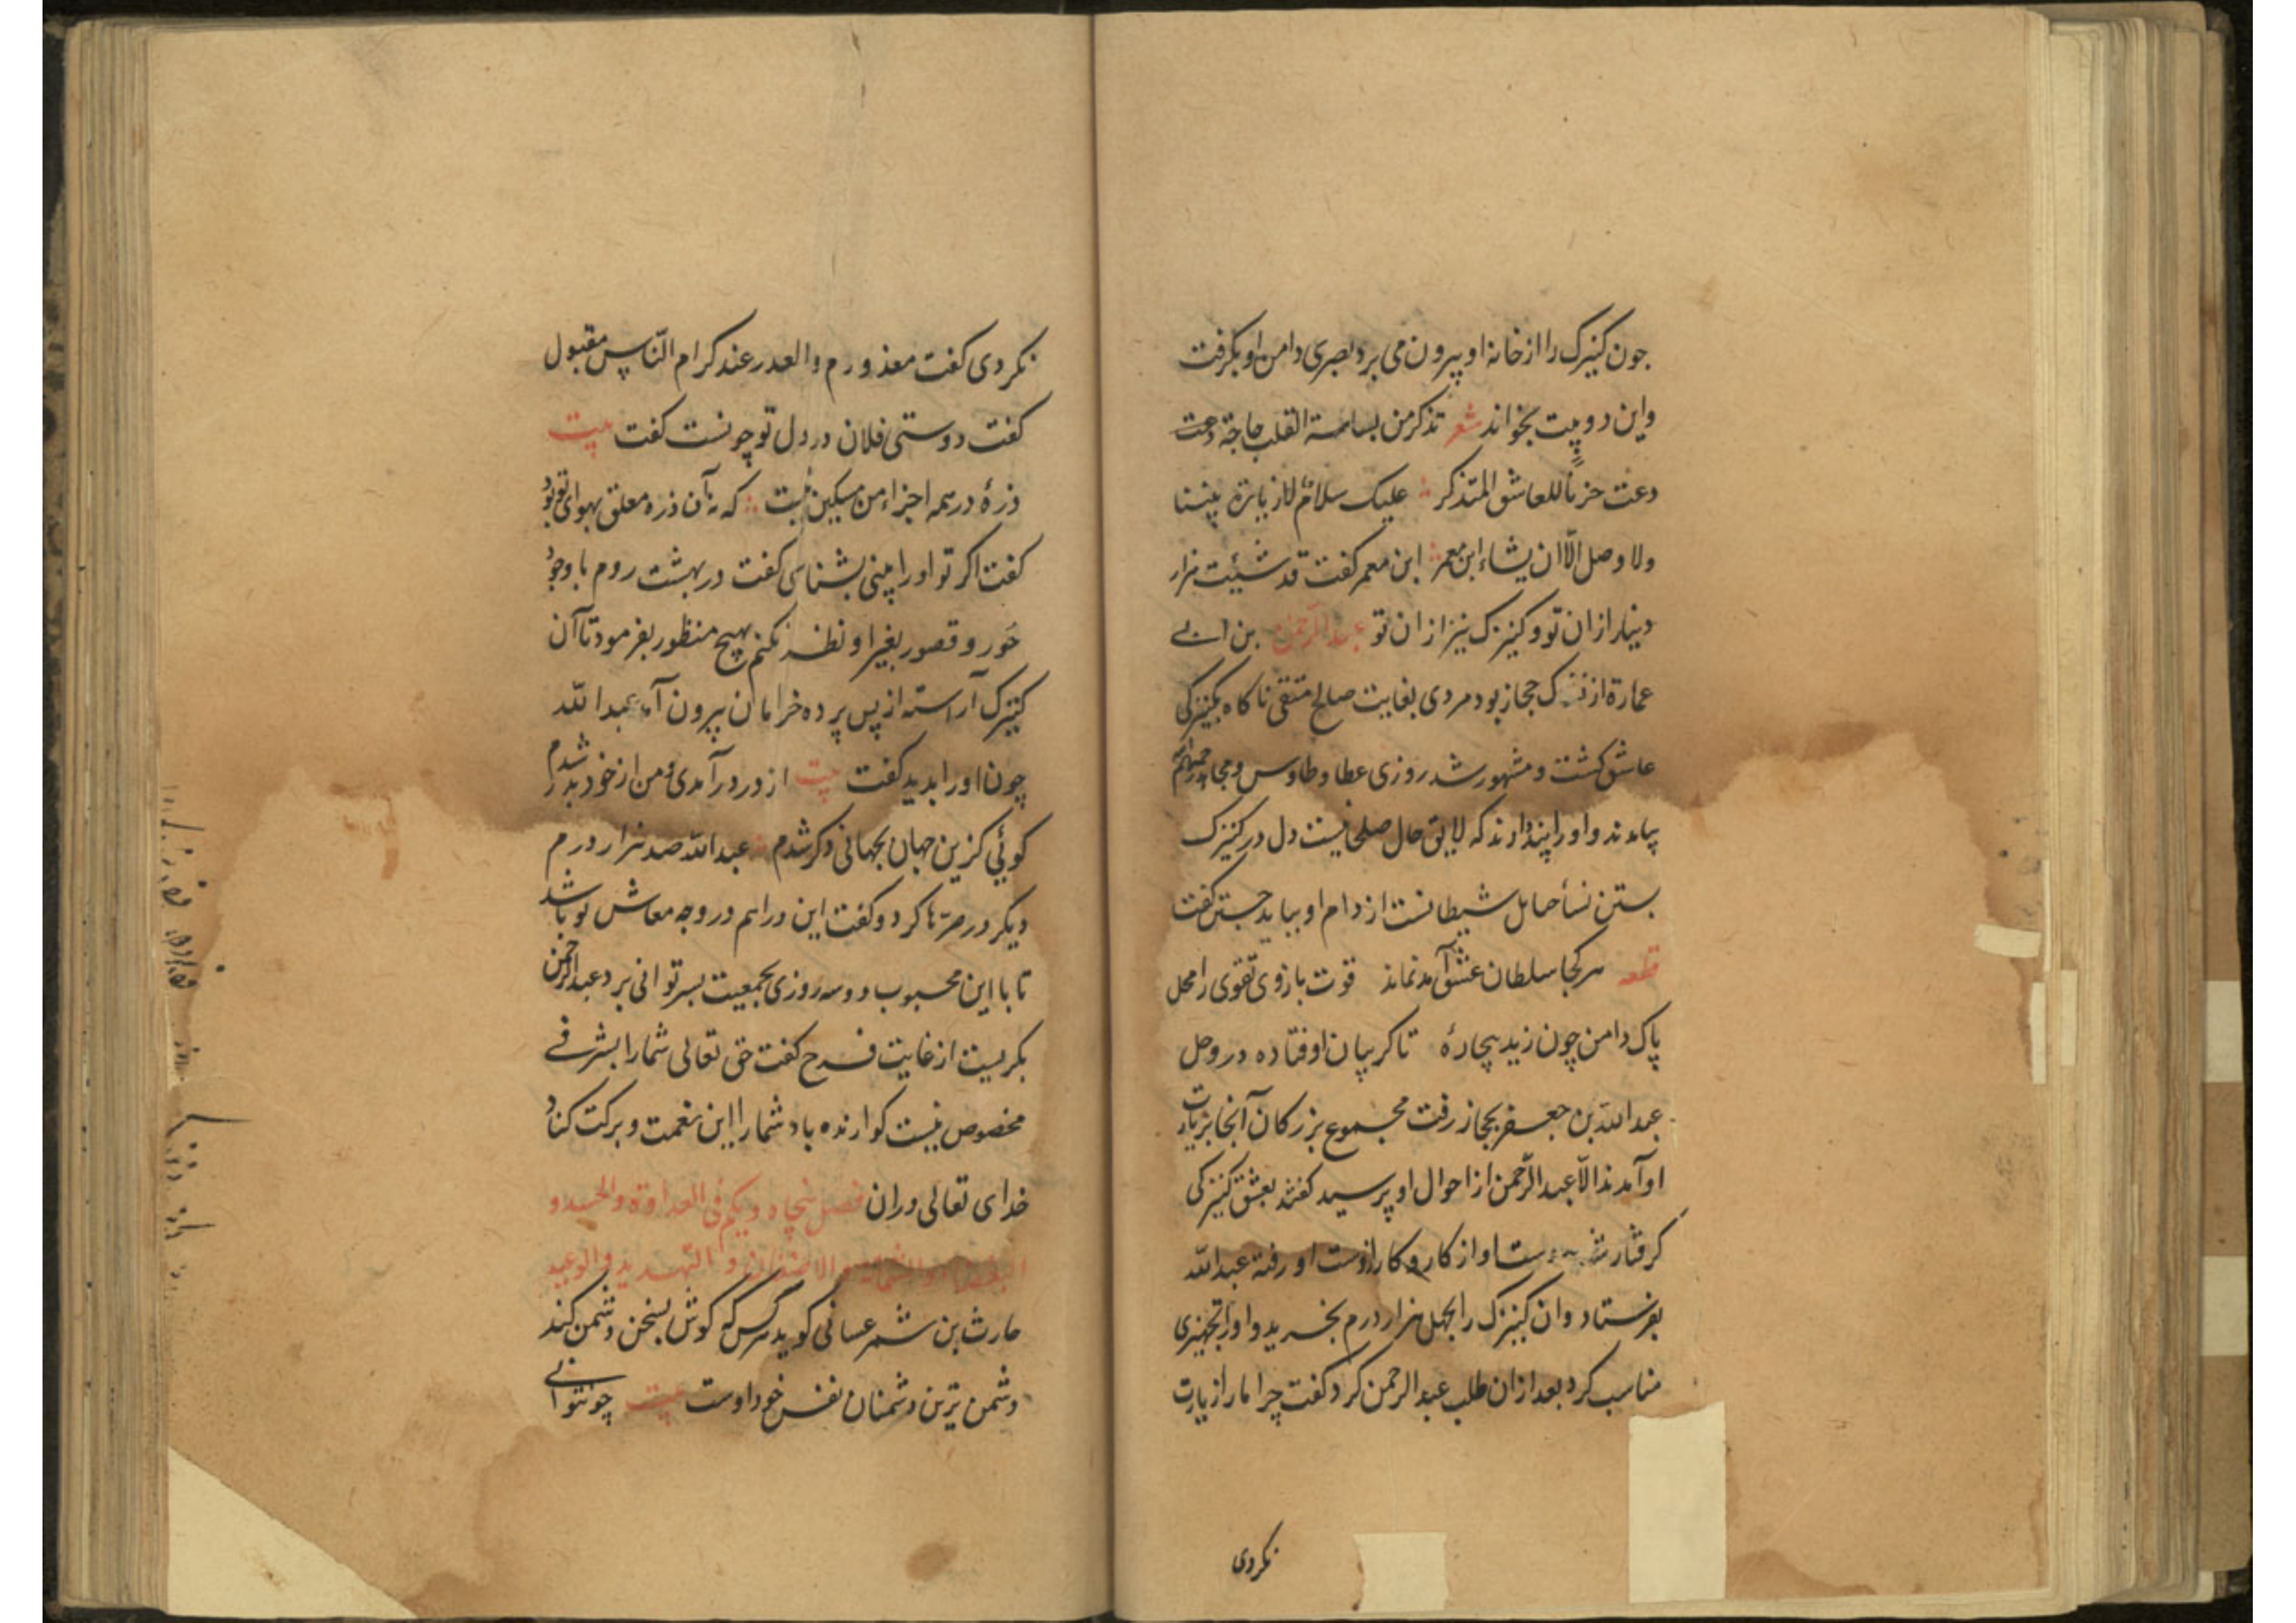 جون کنیزک را از خانهٔ او بیرون می برد بصری دامن او بگرفت
واین دو بیت بخواند شعر تذکر من بساسة القلب حاجة دعت
دعت حزناً للعاشق المتذکر علیک سلام لا زیارة بیننا
ولا وصل الّا ان یشاء ابن معمر ابن معمر گفت قد شئیت هزار
دینار از ان تو و کنیزک نیز از ان تو عبد الرّحمن بن ابی
عمارة از حجاز بود مردی بغایت صالح متقی ناکاه بکنیزکی
عاشق کشت و مشهور شد روزی عطا و طاوس و مجاهد
بیامدند و او را پند دادند که لایق حال صلحا نیست دل در کنیزک
بستن نسأ حبایل شیطانست از دام او بباید جستن گفت
قطعه هرکجا سلطان عشق آمد نماند قوت بازوی تقوی را محل
پاک دامن چون زید بیچارهٔ تا کریبان اوفتاده در وحل
عبد اللّه بن جعفر بحجاز رفت مجموع بزرکان آنجا بزیارت
او آمدند الّا عبد الرّحمن از احوال او پرسید گفتند بعشق کنیزکی
کرفتار دست او از کار و کار از دست او رفته عبد اللّه
بفرستاد و ان کنیزک را بچهل هزار درم بخرید و او را تجهیزی
مناسب کرد بعد از ان طلب عبد الرحمن کرد گفت چرا ما را زیارت
نکردی
نکردی گفت معذورم والعذر عند کرام النّاس مقبول
گفت دوستی فلان در دل تو چونست گفت بیت
ذرهٔ در همه اجزاء من مسکین نیست که نه آن ذره معلق بهوای تو بود
گفت اکر تو او را ببینی بشناسی گفت در بهشت روم با وجود
حور و قصور بغیر او نظر نکنم بهیچ منظور بفرمود تا آن
کنیزک آراسته از پس پرده خرامان بیرون آمد عبد اللّه
چون او را بدید گفت بیت از در درآمدی و من از خود بدر شدم
کوئی کزین جهان بجهانی دکر شدم عبد اللّه صد هزار درم
دیکر در صرّها کرد و گفت این دراهم در وجه معاش تو باشد
تا با این محبوب دو سه روزی بجمعیت بسر توانی برد عبد الرحمن
بکریست از غایت فرح گفت حق تعالی شما را بشرفی
مخصوص نیست کوارنده باد شما را این نعمت و برکت کناد
خدای تعالی دران فصل پنجاه و یکم فی العداوة والحسد و
والشماتة والتهدید والوعید
حارث بن شمر عسانی کوید هرکس که کوش بسخن دشمن کند
دشمن ترین دشمنان نفس خود اوست بیت چو نتوانی